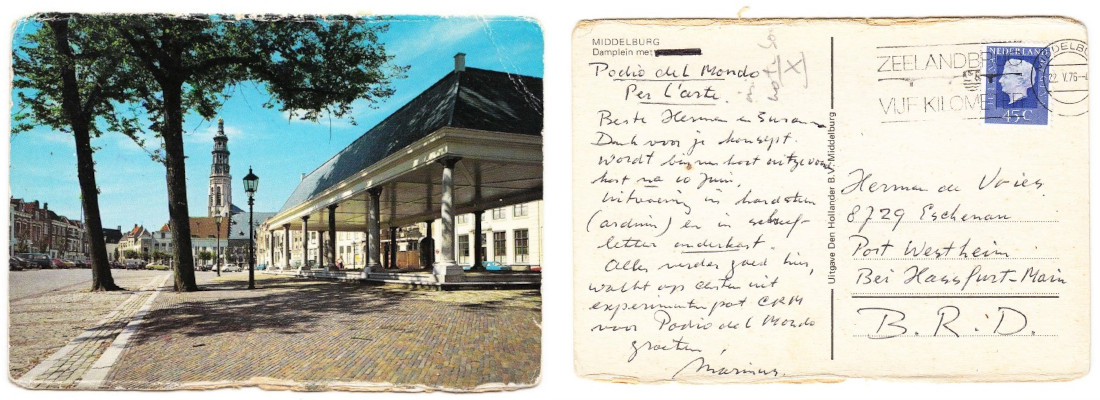 MIDDELBURG
Damplein met
Podio del Mondo
Per L'arte.
Beste Herman en Susanna
Dank voor je konsept.
Wordt binnenkort uitgevoerd
kost na 10 juni.
Uitvoering in hardsteen
(arduin) en in schrijf-
letter onderkast.
Alles verder goed hier,
wacht op centen uit
experimentenpot CRM
voor Podio del Mondo
groeten,
Marinus.
Uitgave Den Hollander B.V. Middelburg
ZEELANDBR
VIJF KILOME
NEDERLAND
45c
MIDDELBU
22.V.76-
Herman de Vries
8729 Eschenau
Post Westheim
Bei Hassfurt-Main
B.R.D.